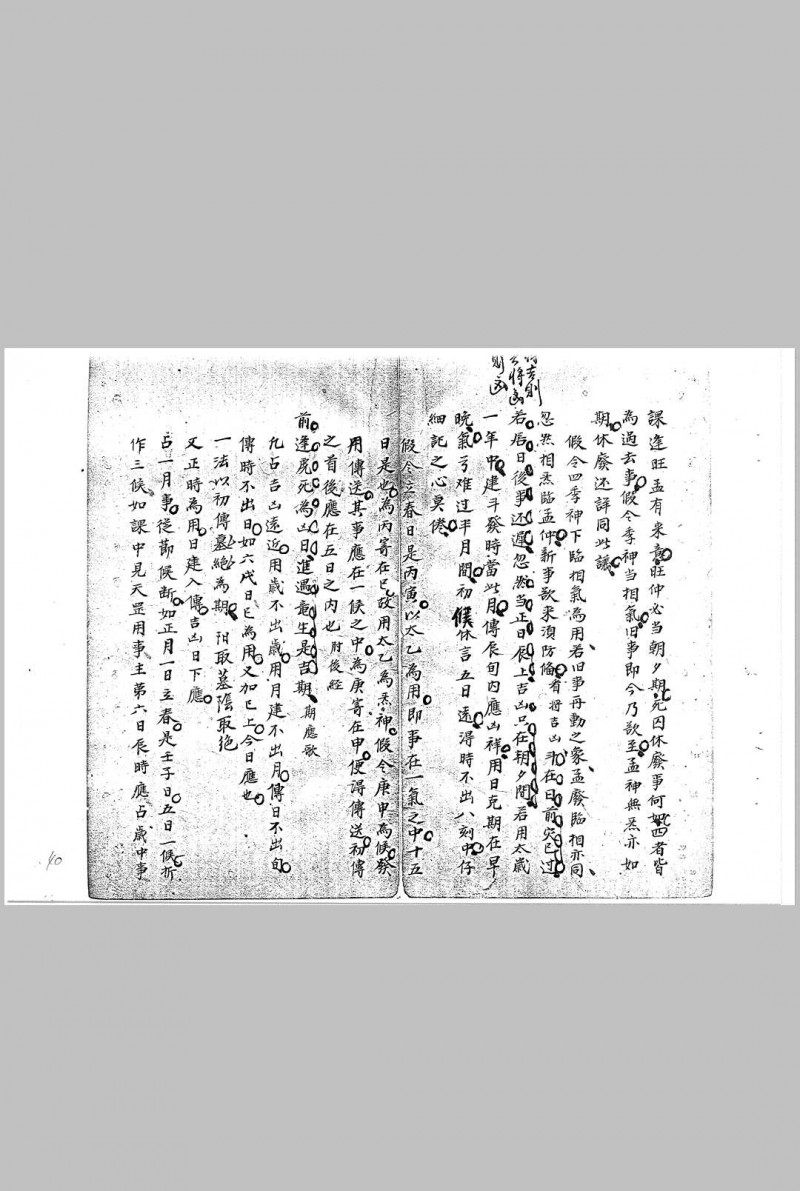 課逢旺孟有来意旺仲必当朝夕期死囚休廢事何如此四者皆
為過去事假令季神当相氣旧事即今乃欲至孟神無炁亦如
期休廢还詳同此議
假令四季神下臨相氣為用若旧事再動之象孟廢臨相亦同
忽然相炁臨孟仲新事欲来須防備看将吉凶斗在日前灾已过
若居日後事还遲忽然当正日辰上吉凶只在朝夕間若用太歲
一年中建斗發時當此月傳辰旬内應凶祥用日克期在早
晩氣亏难过半月間初候休言五日遠得時不出八刻中仔
細記之心莫倦
将吉則
吉将凶
則凶
假令立春日是丙寅以太乙為用即事在一氣之中十五
日是也為丙寄在巳故用太乙為炁神假令庚申為候發
用傳送其事應在一候之中為庚寄在申便得傳送初傳
之首後應在五日之内也 肘後経
前逢死為凶日進過意生是吉期 期應歌
九占吉凶遠近用歲不出歲用月建不出月傳日不出旬
傳時不出日如六戌日巳為用又加巳上今日應也
一法以初傳墓絶為期 陽取墓陰取绝
又正時為用日建入傳吉凶日下應
占一月事從節候断如正月一日立春是壬子日五日一候折
作三候如課中見天罡用事主第六日辰時應占歲中事
40